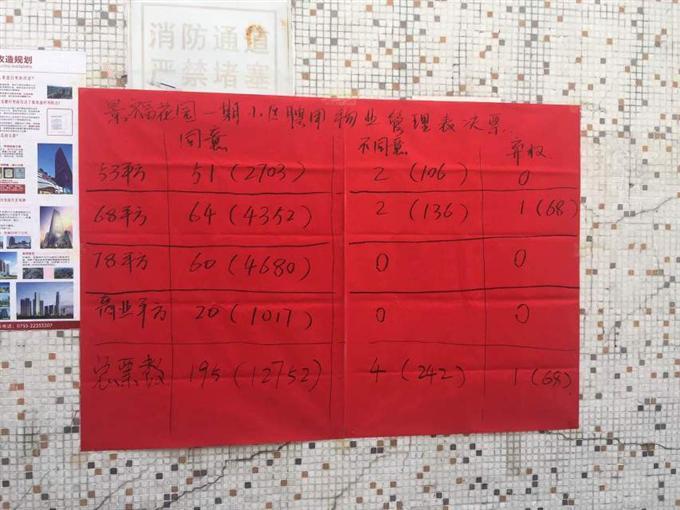 消防通道
严禁堵塞
改造规划
景福花园一期小区聘用物业管理表决票
同意 不同意 弃权
53平方 51(2703) 2(106) 0
68平方 64(4352) 2(136) 1(68)
78平方 60(4680) 0 0
商业平方 20(1017) 0 0
总票数 195(12752) 4(242) 1(68)
电话:0755-22353207